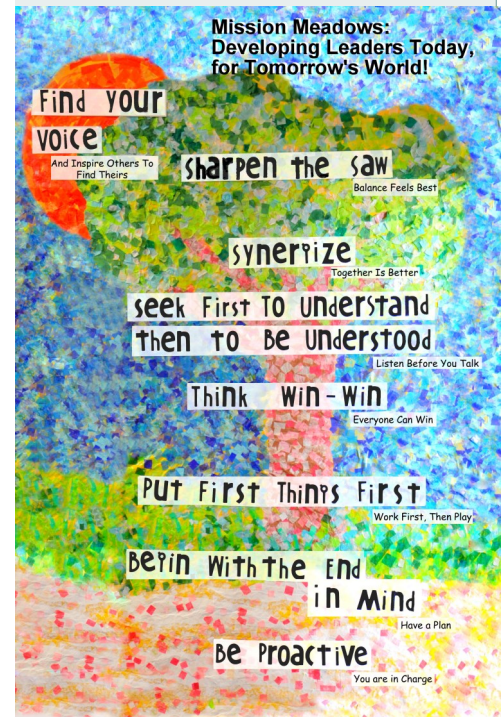 Mission Meadows:
Developing Leaders Today,
for Tomorrow's World!
Find your
voice
And Inspire Others To
Find Theirs
sharpen the saw
Balance Feels Best
synergize
Together Is Better
seek First To understand
then to Be understood
Listen Before You Talk
Think Win-Win
Everyone Can Win
Put First Things First
Work First, Then Play
Begin With the End
in Mind
Have a Plan
Be Proactive
You are in Charge